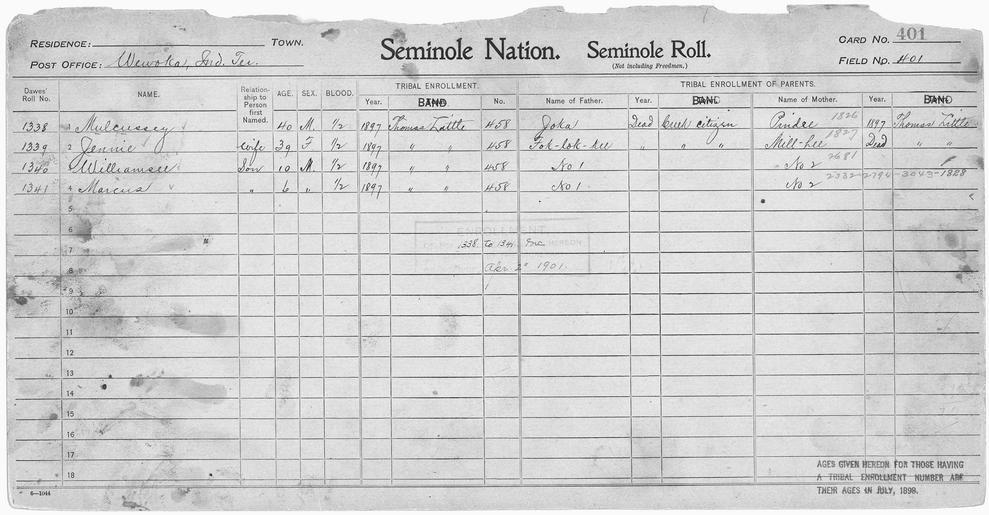 RESIDENCE: TOWN.
POST OFFICE: Wewoka, Ind. Ter.
Seminole Nation. Seminole Roll.
(Not including Freedmen.)
CARD NO. 401
FIELD NO. 401
Dawes' Roll No. NAME. Relationship to Person first Named. AGE. SEX. BLOOD. TRIBAL ENROLLMENT. TRIBAL ENROLLMENT OF PARENTS.
Year. BAND No. Name of Father. Year. BAND Name of Mother. Year. BAND
1338 1 Mulcussey 40 M. 1/2 1897 Thomas Little 458 Joka Dead Creek citizen 1826 1897 Thomas Little
1339 2 Jennie Wife 39 F. 1/2 1897 " " 458 Fok-lok-kee " " " Mill-hee 1827 Dead " "
1340 3 Williamsee Son 10 M. 1/2 1897 " " 458 No 1 No 2 2681
1341 4 Marcus " 6 " 1/2 1897 " " 458 No 1 No 2 2332-2794-3043-1828
5
6 ENROLLMENT
7 1338 to 1341 Inc HEREON
8 Apr. 2" 1901.
9
10
11
12
13
14
15
16
17
18
AGES GIVEN HEREON FOR THOSE HAVING
A TRIBAL ENROLLMENT NUMBER ARE
THEIR AGES IN JULY, 1898.
6—1044